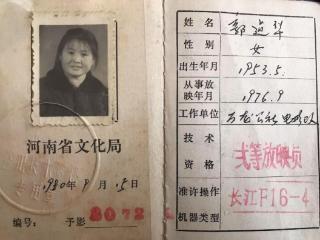 河南省文化局
1980年9月15日
编号：予影 8072
姓名 郭
性别 女
出生年月 1953.5.
从事放映年月 1976.9
工作单位 万龙公社电影队
技术资格 弍等放映员
准许操作机器类型 长江F16-4